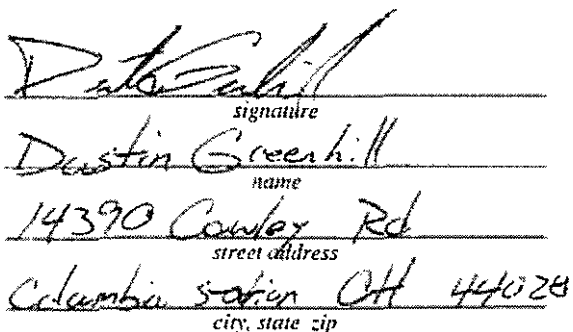 signature
Dustin Greenhill
name
14390 Cowley Rd
street address
Columbia station OH 44028
city, state zip